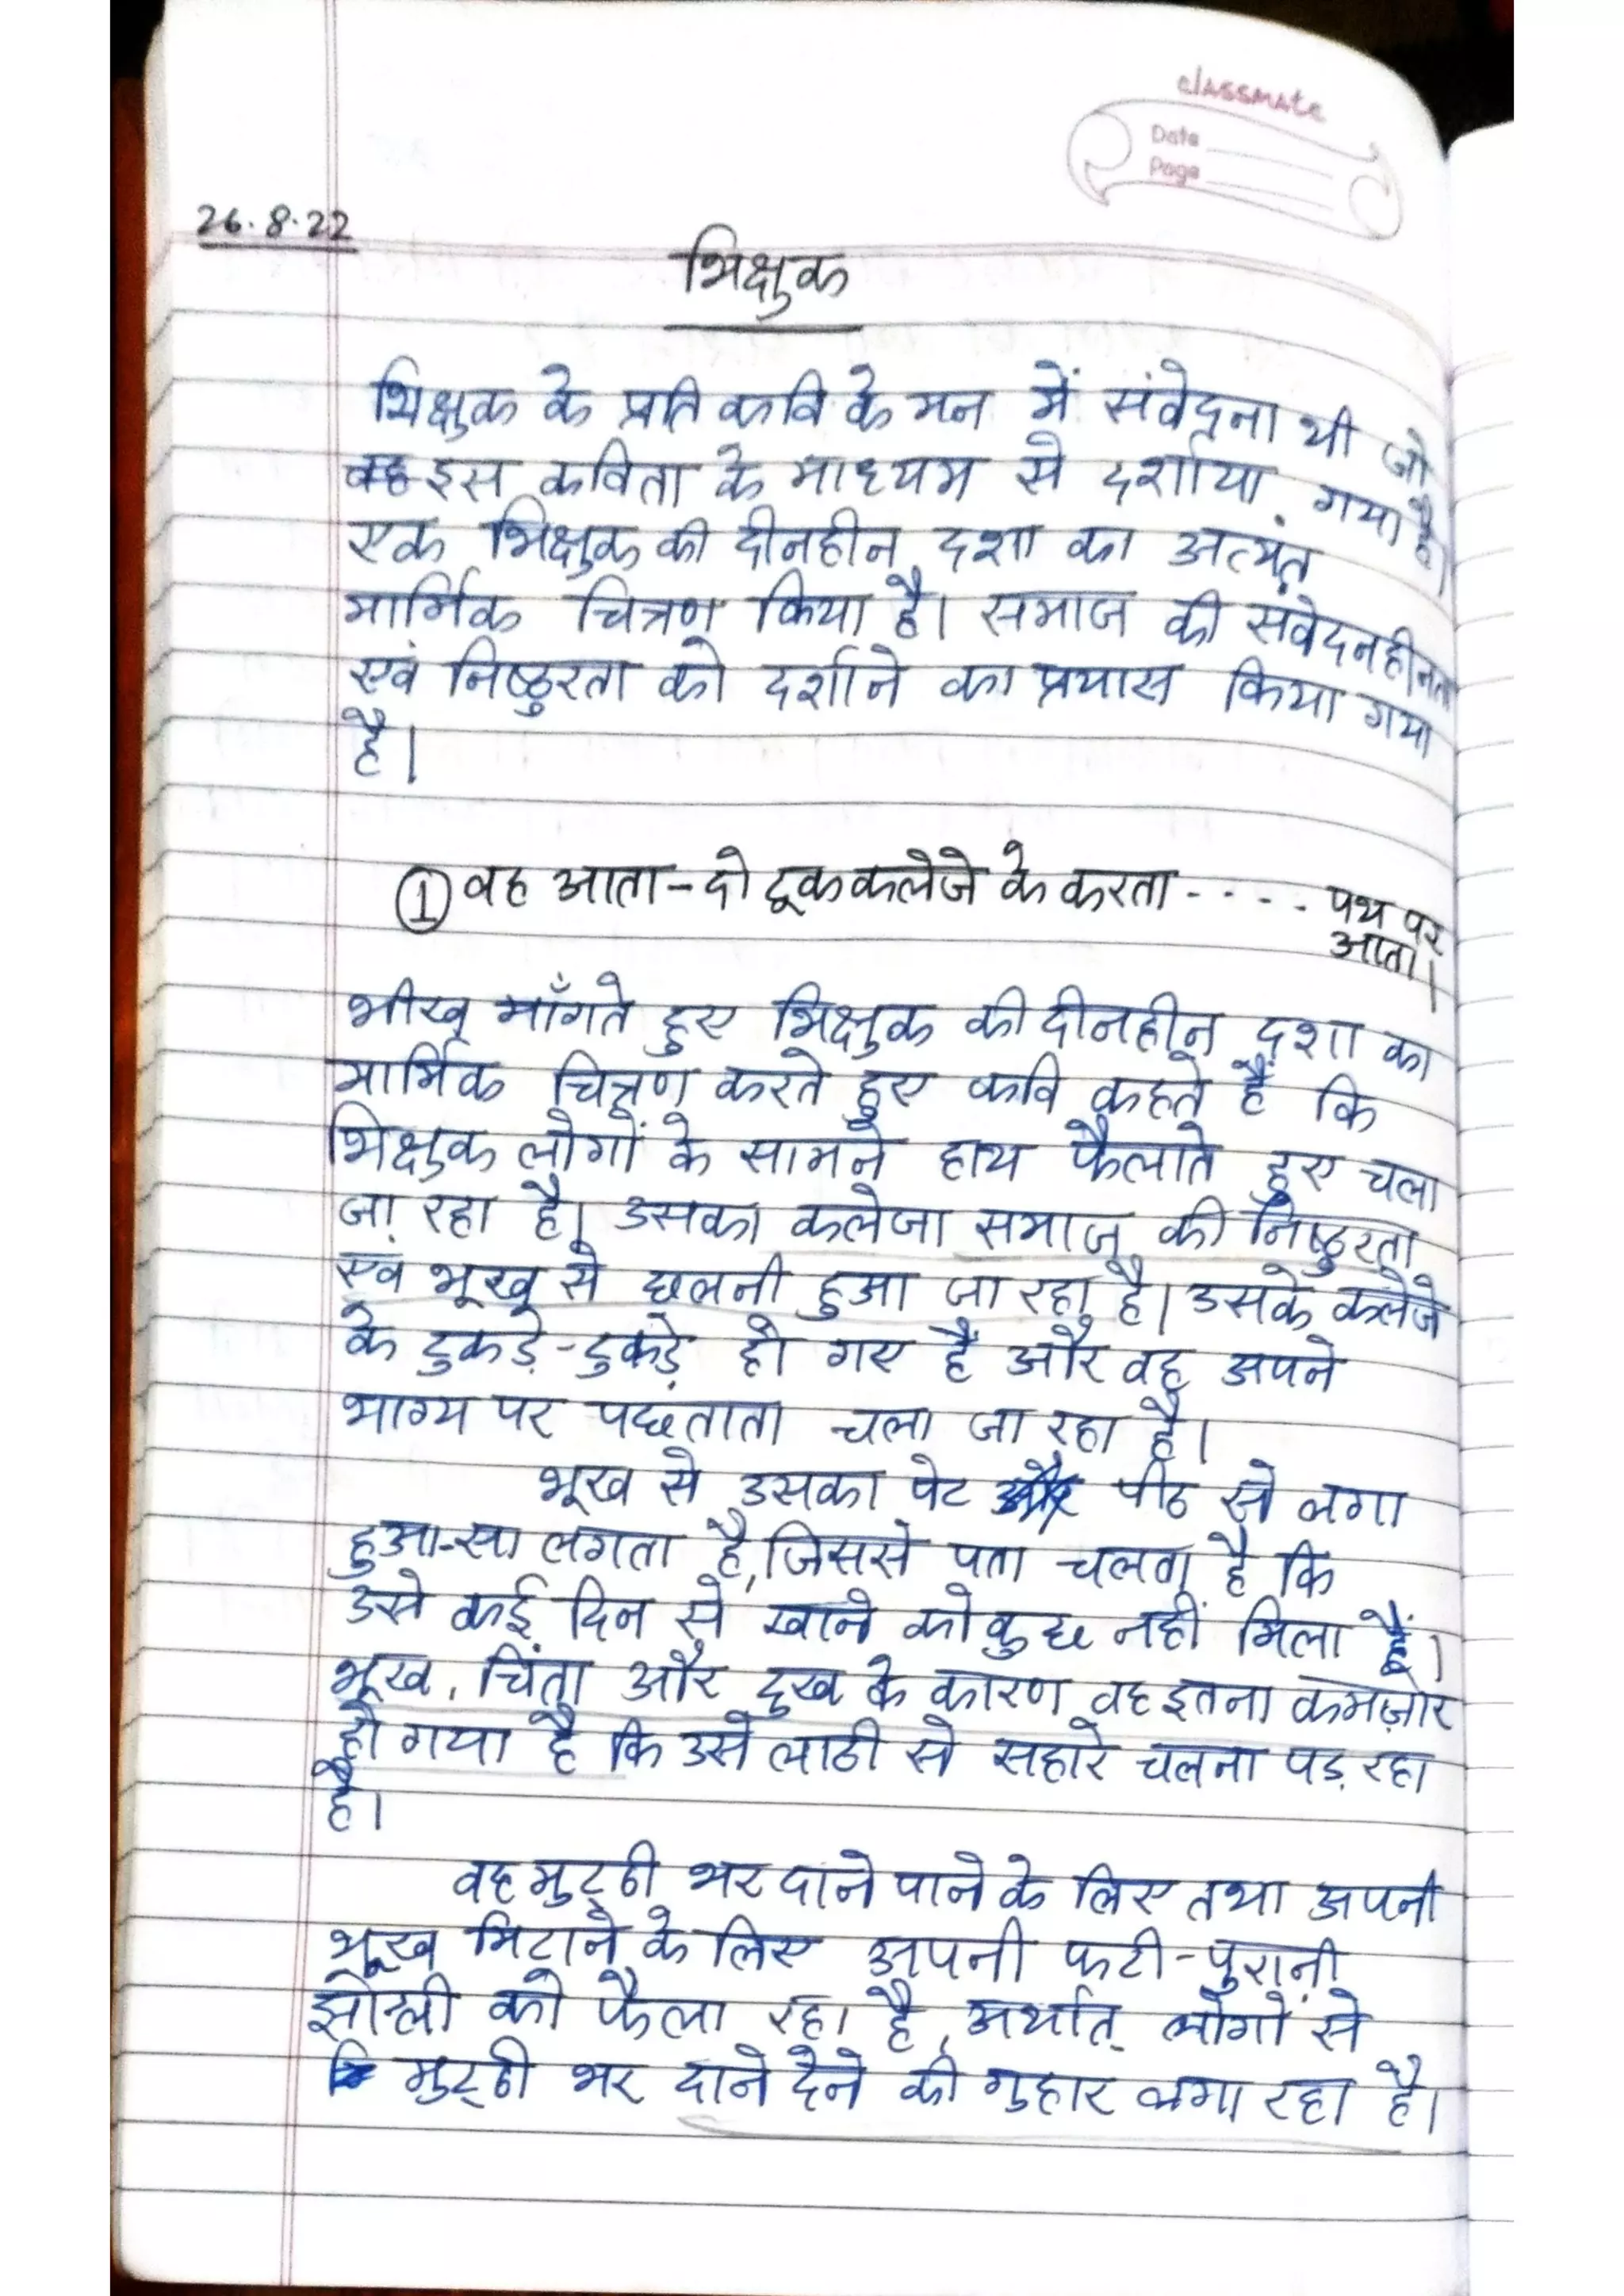 classmate
Date
Page
26.8.22
भिक्षुक
भिक्षुक के प्रति कवि के मन में संवेदना थी जो
इस कविता के माध्यम से दर्शाया गया है।
एक भिक्षुक की दीनहीन दशा का अत्यंत
मार्मिक चित्रण किया है। समाज की संवेदनहीनता
एवं निष्ठुरता को दर्शाने का प्रयास किया गया
है।
① वह आता - दो टूक कलेजे के करता ..... पथ पर
आता।
भीख माँगते हुए भिक्षुक की दीनहीन दशा का
मार्मिक चित्रण करते हुए कवि कहते हैं कि
भिक्षुक लोगों के सामने हाथ फैलाते हुए चला
जा रहा है। उसका कलेजा समाज की निष्ठुरता
एवं भूख से छलनी हुआ जा रहा है। उसके कलेजे
के टुकड़े-टुकड़े हो गए हैं और वह अपने
भाग्य पर पछताता चला जा रहा है।
भूख से उसका पेट और पीठ से लगा
हुआ-सा लगता है, जिससे पता चलता है कि
उसे कई दिन से खाने को कुछ नहीं मिला है।
भूख, चिंता और दुख के कारण वह इतना कमज़ोर
हो गया है कि उसे लाठी से सहारे चलना पड़ रहा
है।
वह मुट्ठी भर दाने पाने के लिए तथा अपनी
भूख मिटाने के लिए अपनी फटी-पुरानी
झोली को फैला रहा है, अर्थात् लोगों से
मुट्ठी भर दाने देने की गुहार लगा रहा है।